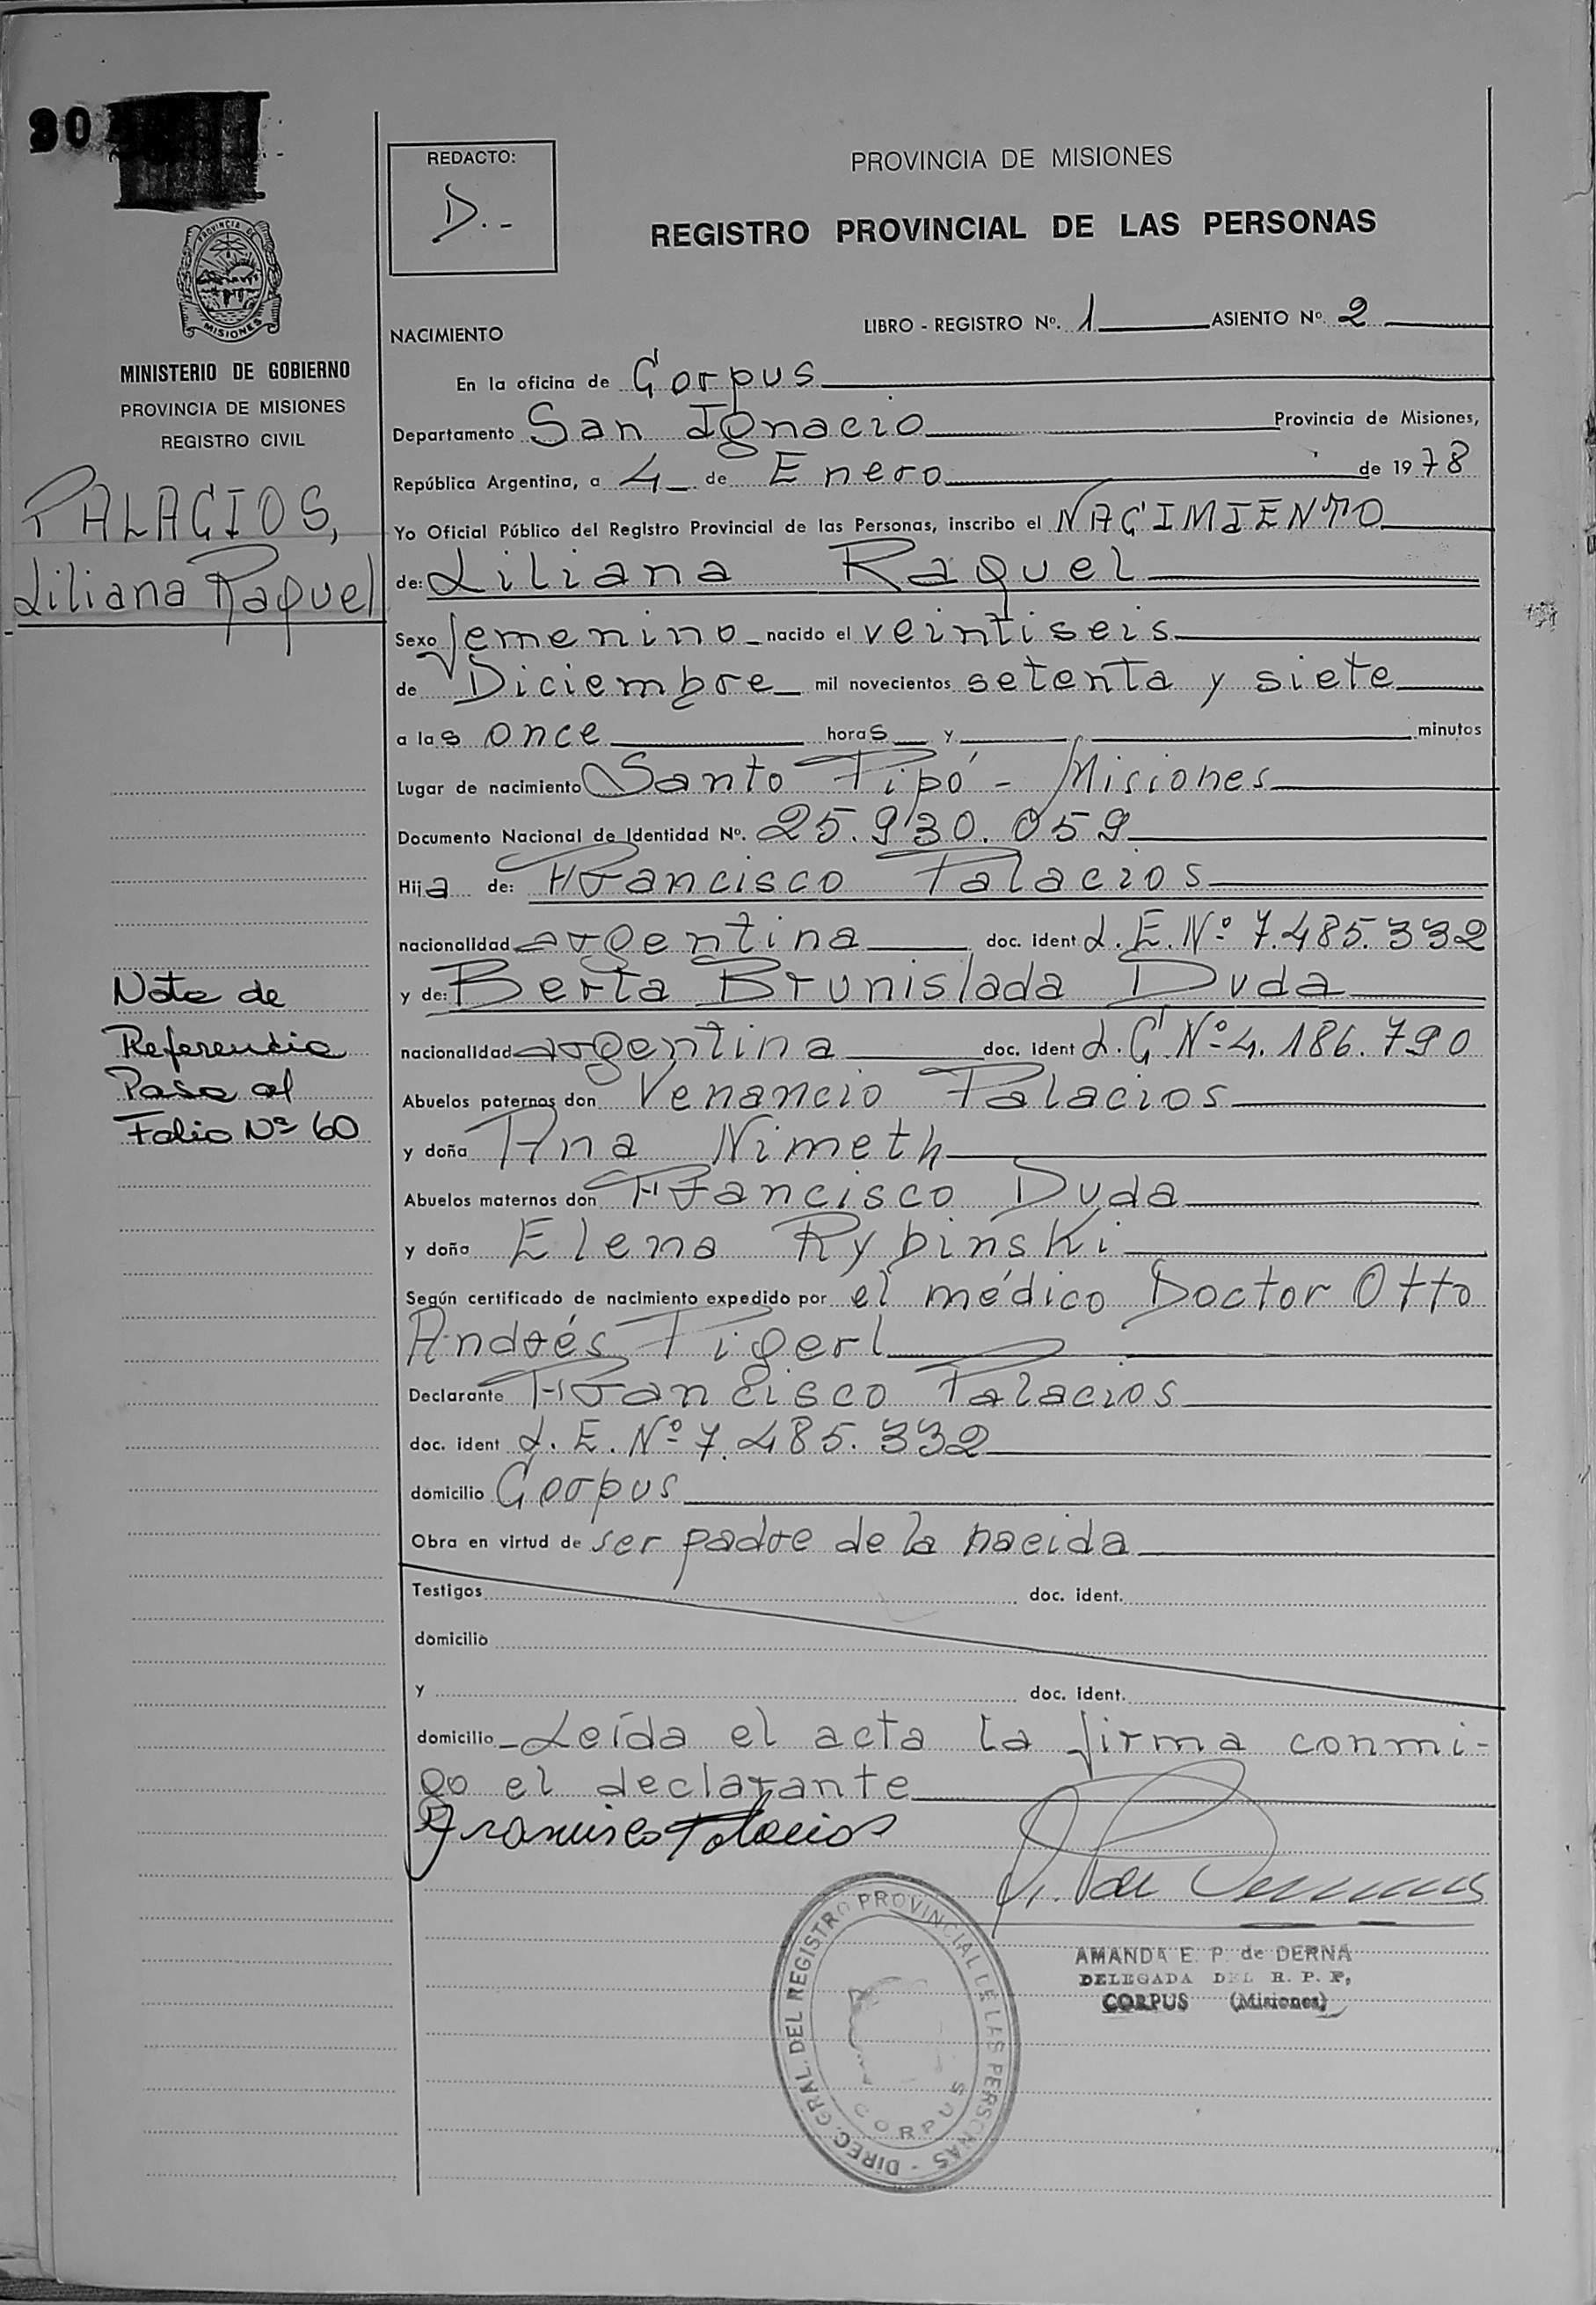 30
REDACTO:
D.-
PROVINCIA DE MISIONES
REGISTRO PROVINCIAL DE LAS PERSONAS
PROVINCIA DE
MISIONES
MINISTERIO DE GOBIERNO
PROVINCIA DE MISIONES
REGISTRO CIVIL
PALACIOS,
Liliana Raquel
Nota de
Referencia
Pasa al
Folio Nº 60
NACIMIENTO LIBRO - REGISTRO Nº. 1 ASIENTO Nº. 2
En la oficina de Corpus
Departamento San Ignacio Provincia de Misiones,
República Argentina, a 4 de Enero de 1978
Yo Oficial Público del Registro Provincial de las Personas, inscribo el NACIMIENTO
de: Liliana Raquel
Sexo femenino nacido el veintiseis
de Diciembre mil novecientos setenta y siete
a las once horas y minutos
Lugar de nacimiento Santo Pipó - Misiones
Documento Nacional de Identidad Nº. 25.930.059
Hija de: Francisco Palacios
nacionalidad argentina doc. ident L.E.Nº 7.485.332
y de: Berta Brunislada Duda
nacionalidad argentina doc. ident L.C.Nº 4.186.790
Abuelos paternos don Venancio Palacios
y doña Ana Nimeth
Abuelos maternos don Francisco Duda
y doña Elena Rybinski
Según certificado de nacimiento expedido por el médico Doctor Otto
Andrés Pigerl
Declarante Francisco Palacios
doc. ident L.E.Nº 7.485.332
domicilio Corpus
Obra en virtud de ser padre de la nacida
Testigos doc. ident.
domicilio
y doc. ident.
domicilio Leída el acta la firma conmi-
go el declarante
Francisco Palacios
AMANDA E. P. de DERNA
DELEGADA DEL R. P. P,
CORPUS (Misiones)
DIREC. GRAL. DEL REGISTRO PROVINCIAL DE LAS PERSONAS -
CORPUS